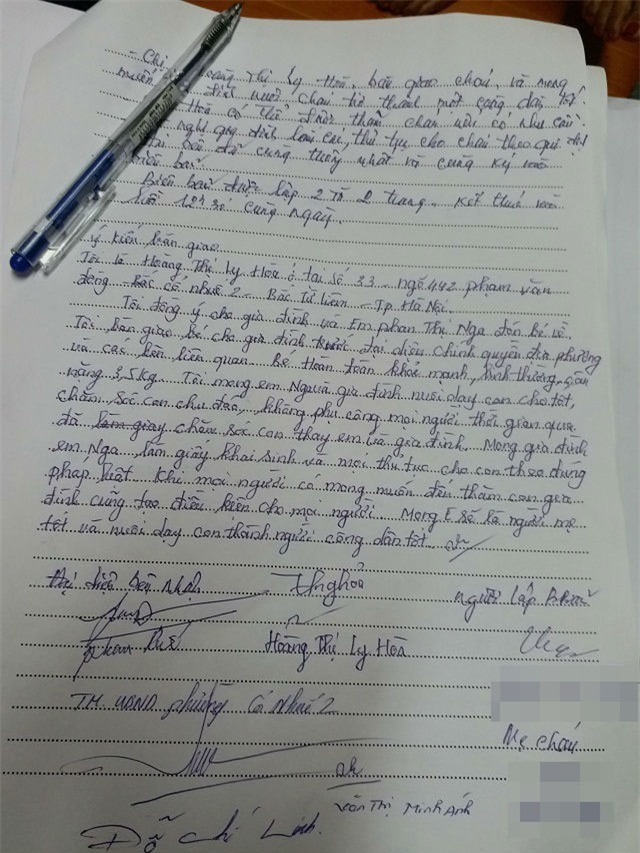 - Chị Hoàng Thị Ly Hoà bàn giao cháu và mong
muốn đình nuôi cháu trở thành một công dân tốt.
Hoà có thể được thăm cháu nếu có nhu cầu.
nghị gia đình làm các thủ tục cho cháu theo qui
bên đã cùng thống nhất và cùng ký vào
biên bản
Biên bản được lập 2 tờ 2 trang. kết thúc vào
12h cùng ngày.
ý kiến bàn giao
Tôi là Hoàng Thị Ly Hòa ở tại số 33 - ngõ 442 phạm văn
đồng - Bắc cổ nhuế 2 - Bắc Từ Liêm - Tp Hà Nội.
Tôi đồng ý cho gia đình và Em phan Thị Nga đón bé về.
Tôi bàn giao bé cho gia đình trước đại diện chính quyền địa phương
và các bên liên quan. bé Hoàn toàn khỏe mạnh, bình thường, cân
nặng 3,5kg. Tôi mong em Nga và gia đình nuôi dạy con cho tốt,
chăm sóc con chu đáo, không phụ công mọi người thời gian qua
đã chăm sóc con thay em và gia đình. Mong gia đình
em Nga làm giấy khai sinh và mọi thủ tục cho con theo đúng
pháp luật. Khi mọi người có mong muốn đến thăm con gia
đình cũng tạo điều kiện cho mọi người. Mong E sẽ là người mẹ
tốt và nuôi dạy con thành người công dân tốt.
đại diện bên nhận
người lập
Hoàng Thị Ly Hoà
TM UBND phường Cổ Nhuế 2
Mẹ cháu
Văn Thị Minh Ánh
Đỗ Chí Linh.